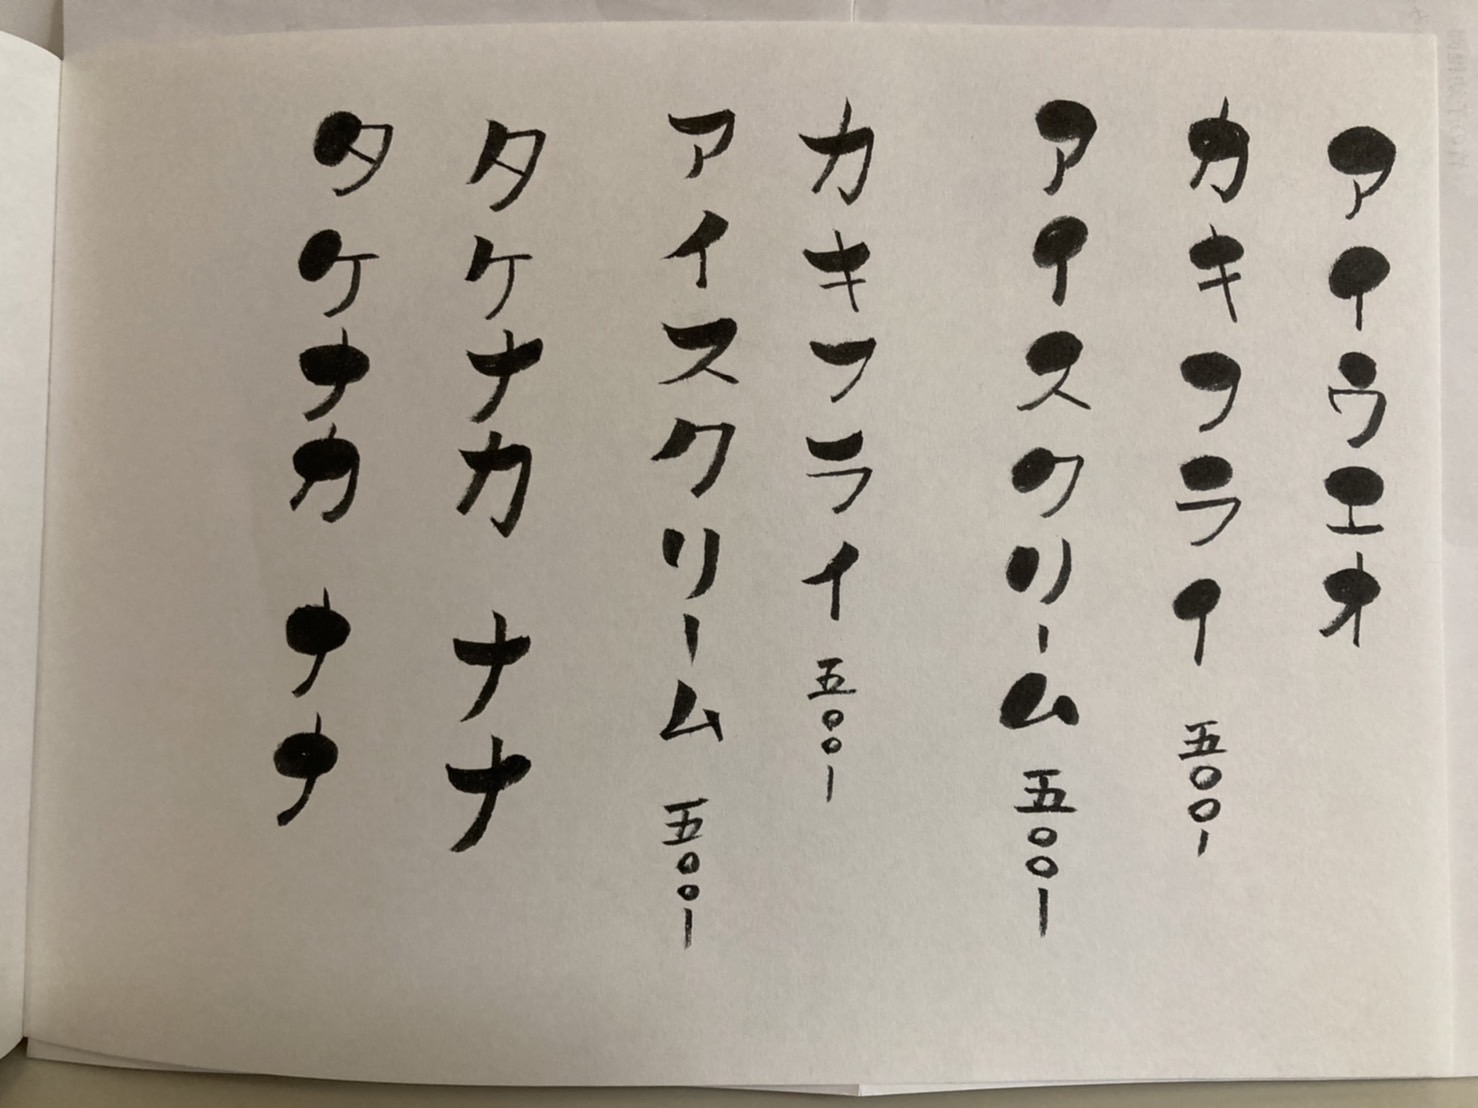 アイウエオ
カキフライ 五〇〇ー
アイスクリーム 五〇〇ー
カキフライ 五〇〇ー
アイスクリーム 五〇〇ー
タケナカ ナナ
タケナカ ナナ